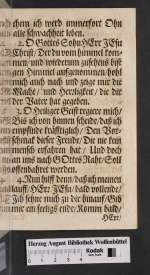 chern ich werd immerfort Ohn
alle schwachheit leben.
2. O Gottes Sohn HErr JEsu
Christ/ Der du vom himmel kom-
men/ und wiederum zusehens bist
gen Himmel aufgenommen hohl
mich auch nach und zeige mir die
Macht/ und Herrligkeit/ die dir
der Vater hat gegeben.
3. O Heiliger Geist regiere mich/
Bis ich von hinnen scheide/ daß ich
empfinde kräfftiglich/ Den Vor-
schmak dieser Freude/ Die nie kein
mensch erfahren hat/ Und doch
an uns nach GOttes Raht/ Soll
offenbahret werden.
4. Nun hilff denn/ daß ich meinen
lauff/ HErr JEsu/ bald vollende/
Ich sehne mich zu dir hinauf/ Gib
mir ein seeligs ende: Komm bald/
HErr/
Herzog August Bibliothek Wolfenbüttel
Kodak